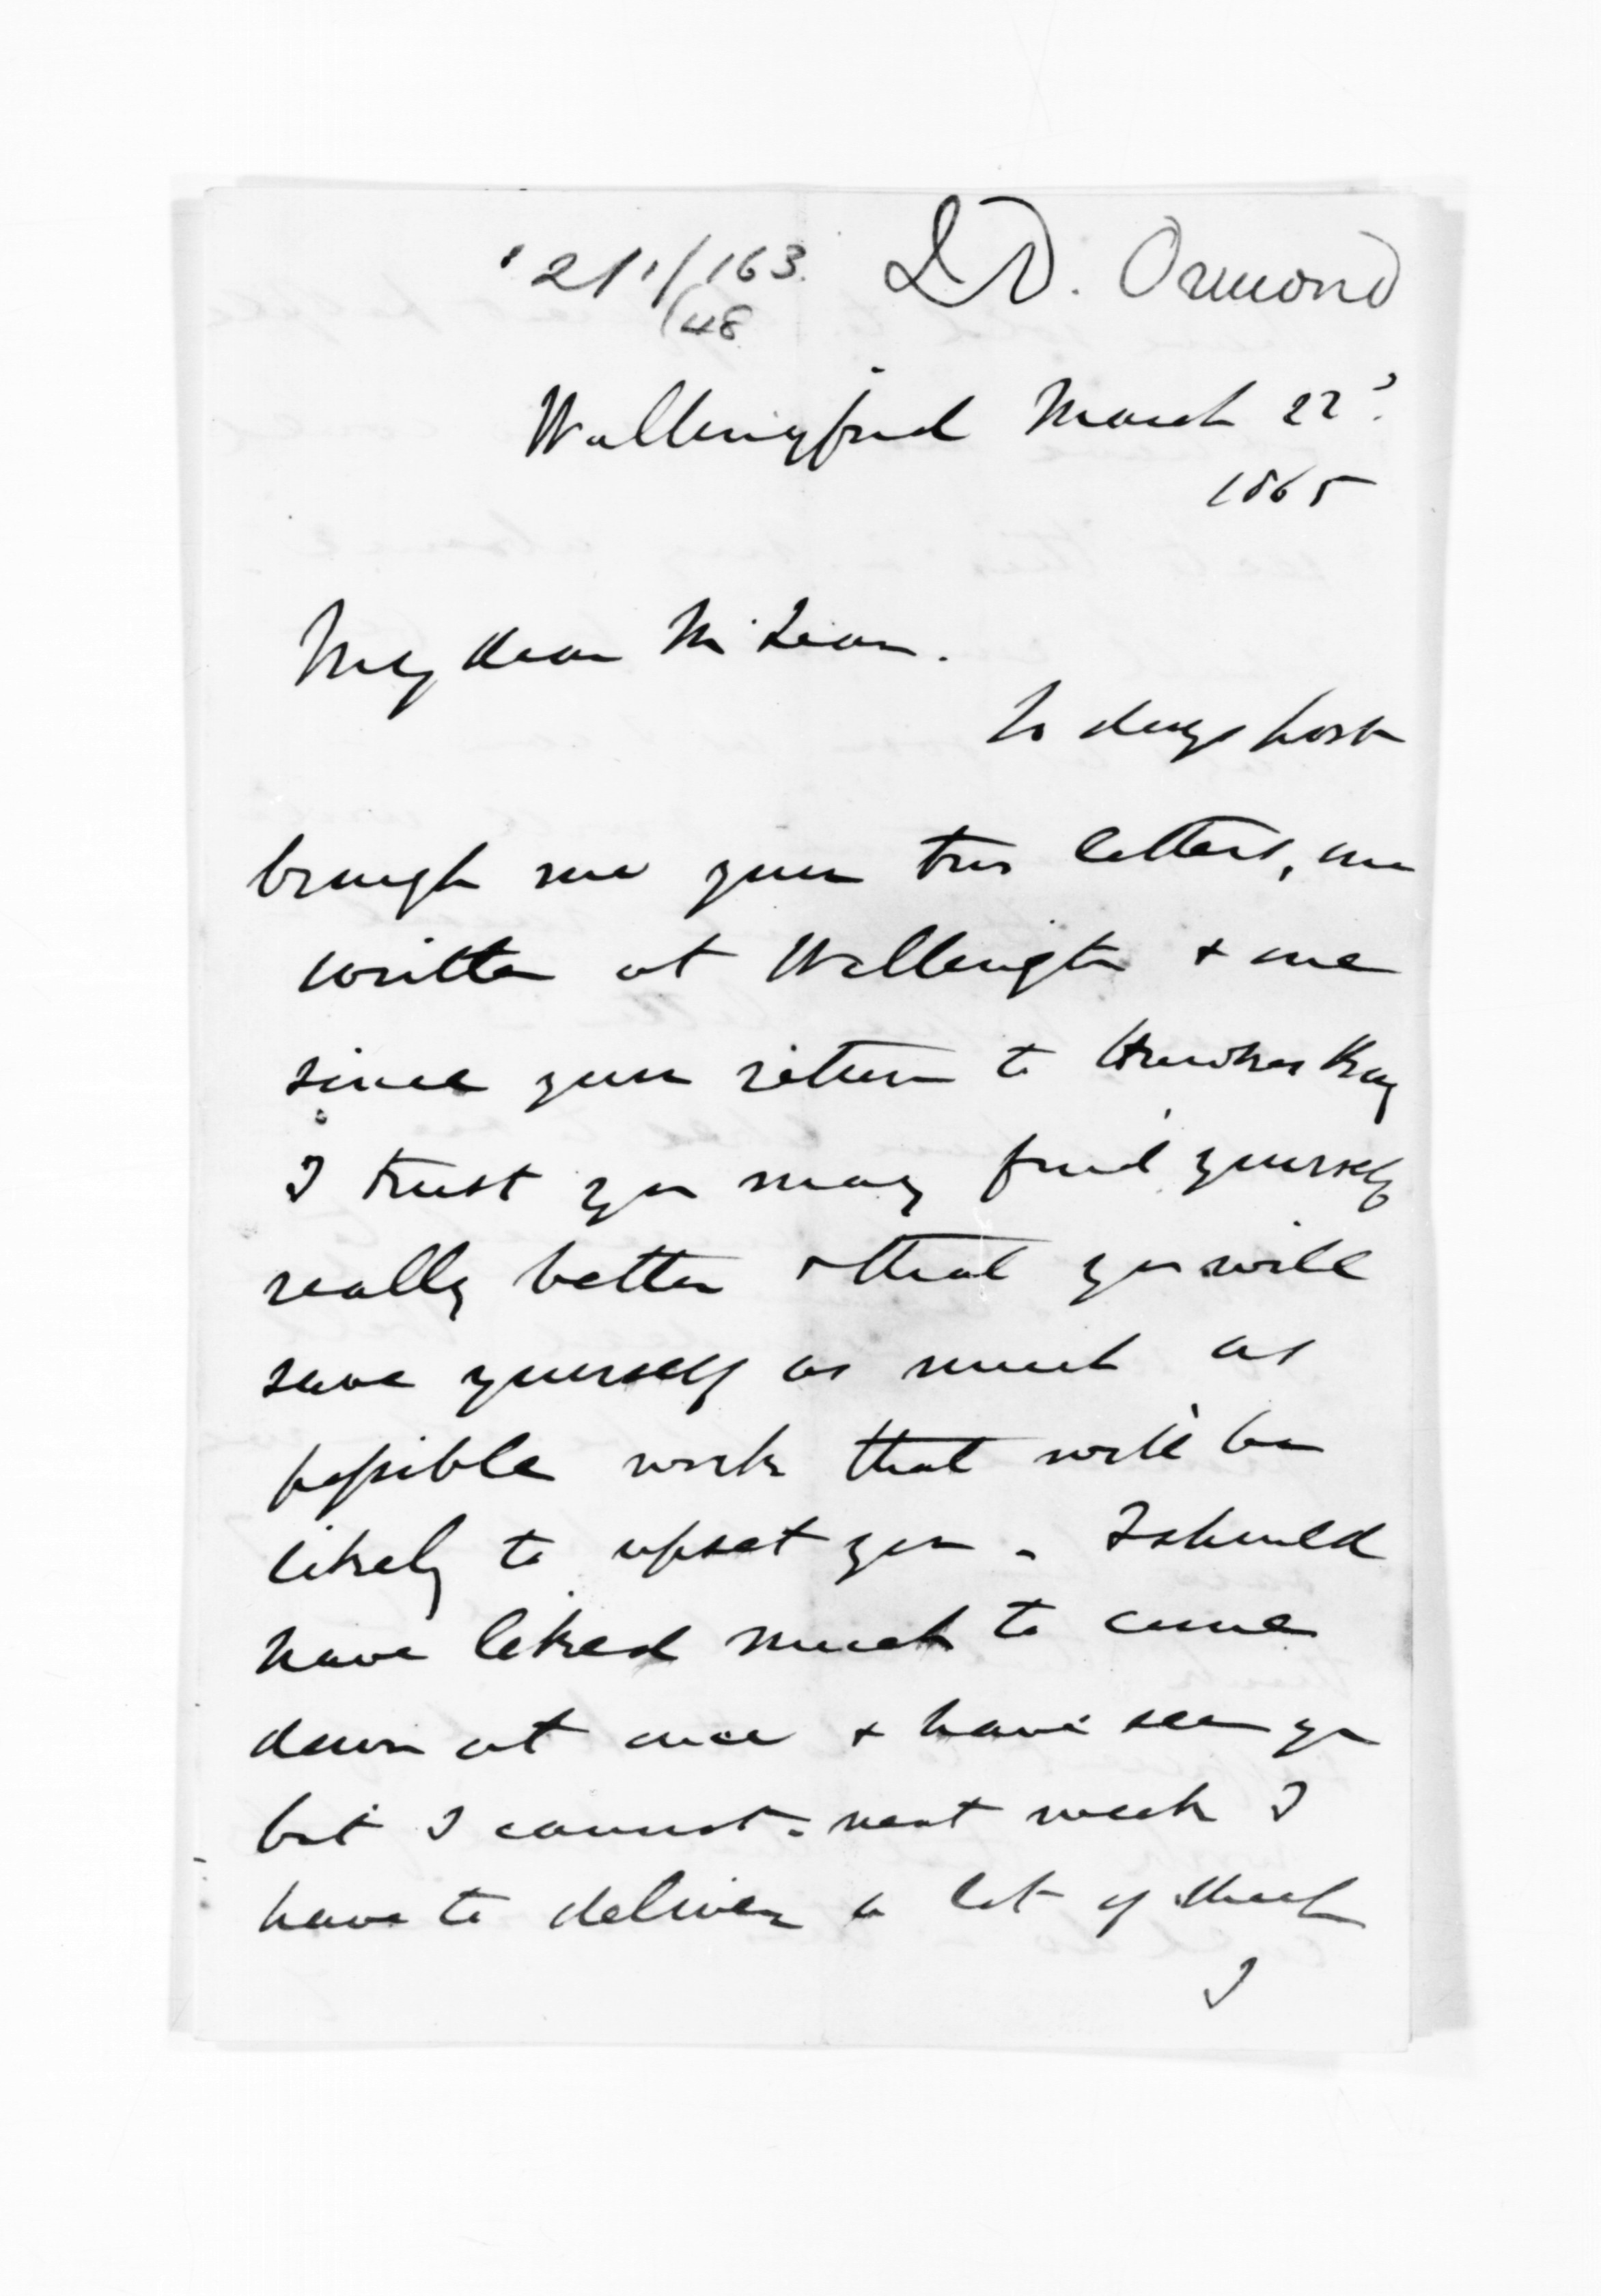 211/163. J.D. Ormond
/48
Wallingford March 22d.
1865
My dear McLean.
To days post
brough me your two letters, one
written at Wellington & one
since your return to Hawkes Bay
I trust you may find yourself
really better & that you will
save yourself as much as
possible work that will be
likely to upset you - I should
have liked much to come
down at once & have seen you
but I cannot - next week I
have to deliver a lot of sheep
I